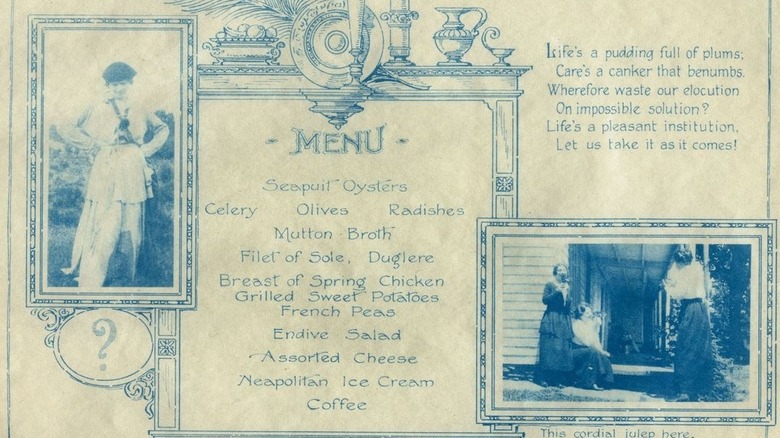 Life's a pudding full of plums;
Care's a canker that benumbs.
Wherefore waste our elocution
On impossible solution?
Life's a pleasant institution,
Let us take it as it comes!
- MENU -
Seapuit Oysters
Celery Olives Radishes
Mutton Broth
Filet of Sole, Duglere
Breast of Spring Chicken
Grilled Sweet Potatoes
French Peas
Endive Salad
Assorted Cheese
Neapolitan Ice Cream
Coffee
?
This cordial julep here,